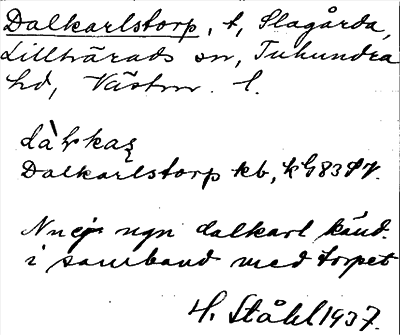 Dalkarlstorp, t, Slagårda,
Lillhärads sn, Tuhundra
hd, Västm. l.
Dalkarlstorp kb,
Nu ej ngn dalkarl känd
i samband med torpet
H. Ståhl 1937.